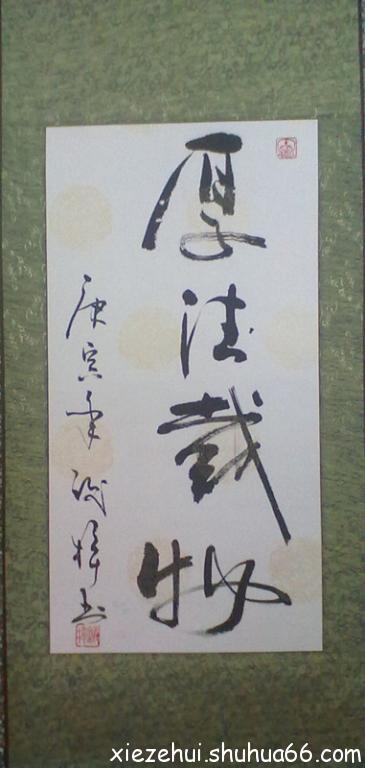 厚德載物
庚寅年 书
xiezehui.shuhua66.com